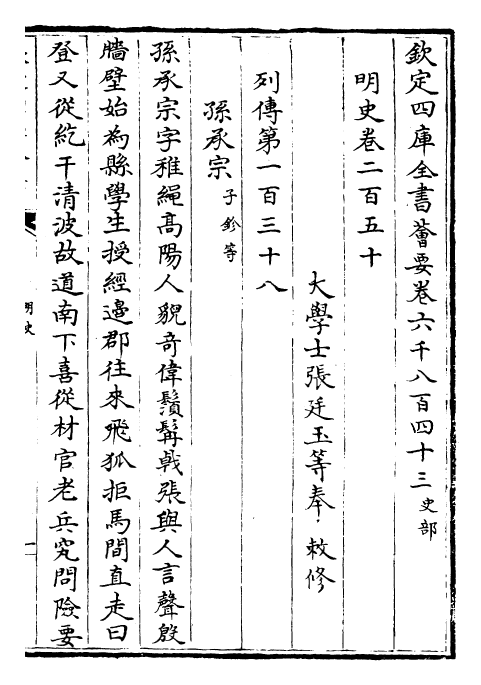 欽定四庫全書薈要卷六千八百四十三史部
明史卷二百五十
大學士張廷玉等奉敕修
列傳第一百三十八
孫承宗子鉁等
孫承宗字稚繩高陽人貌竒偉鬚髯㦸張與人言聲殷
牆壁始為縣學生授經邊郡往來飛狐拒馬間直走白
登又從紇干清波故道南下喜從材官老兵究問險要
明史
一